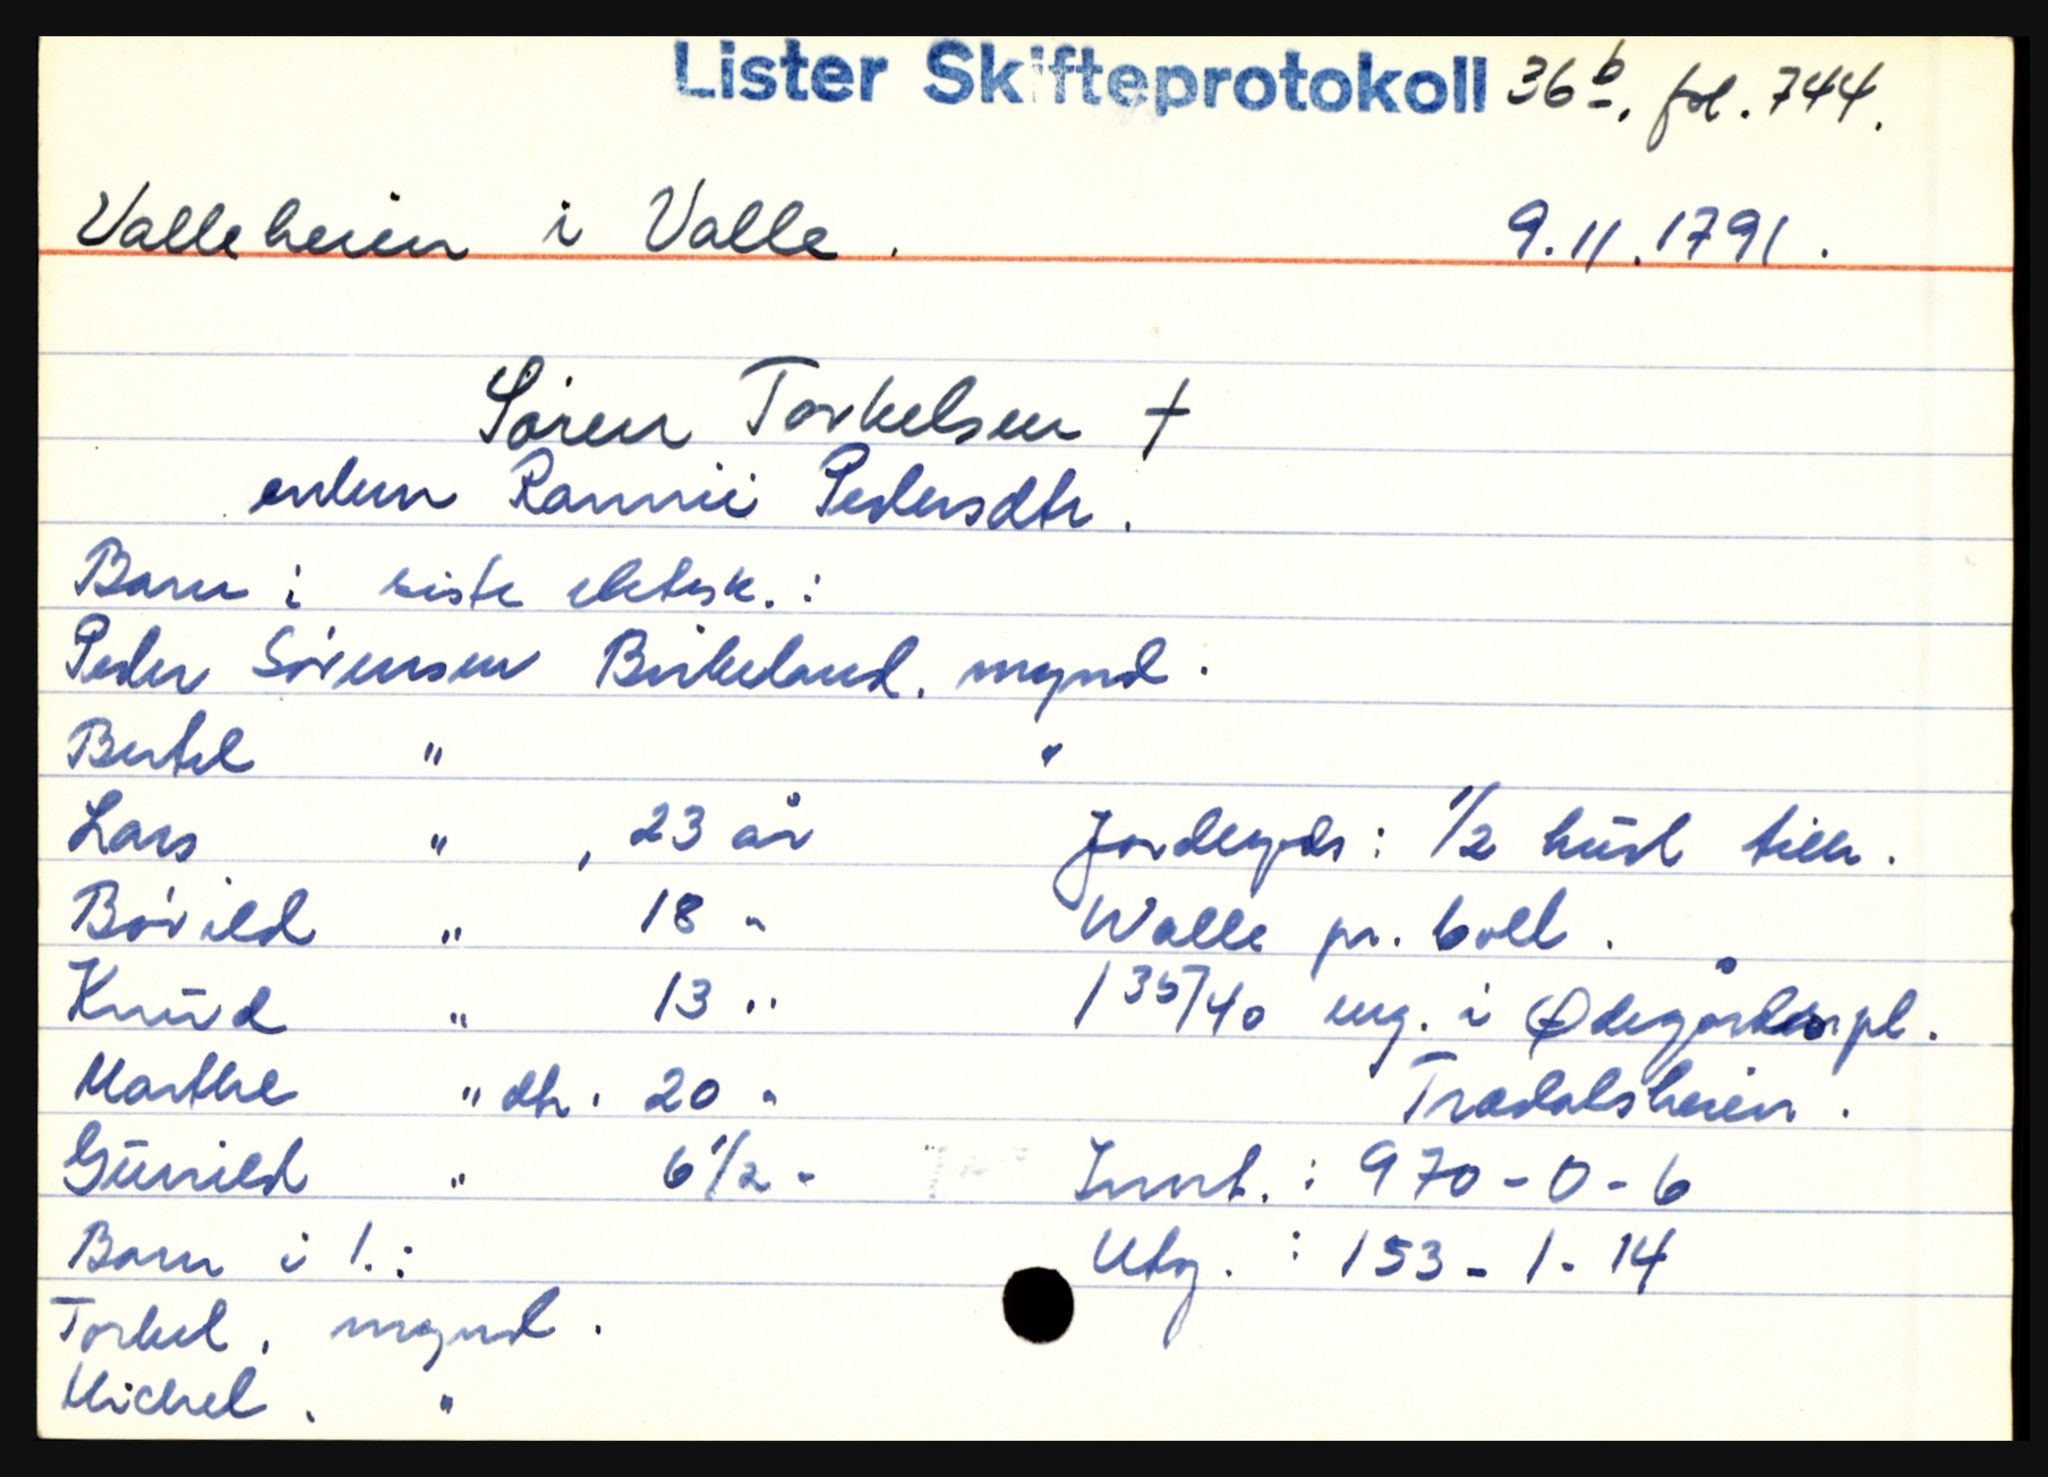 Lister Skifteprotokoll 36 b, fol. 744.
Valleheien i Valle. 9.11.1791.
Søren Torkelsen †
enken Rannii Pedersdtr.
Barn i siste ektesk.:
Peder Sørensen Birkeland. mynd.
Bertel " "
Lars ", 23 år
Børild " 18 "
Knud " 13 "
Marthe " dtr. 20 "
Gunild " 6 1/2 "
Barn i 1.:
Torkel, mynd.
Michel. "
Jordegods: 1/2 hud tilh.
Walle pr. boll.
1 35/40 eng. i Ødegårdspl.
Trædalsheien.
Innt.: 970-0-6
Utg.: 153-1-14